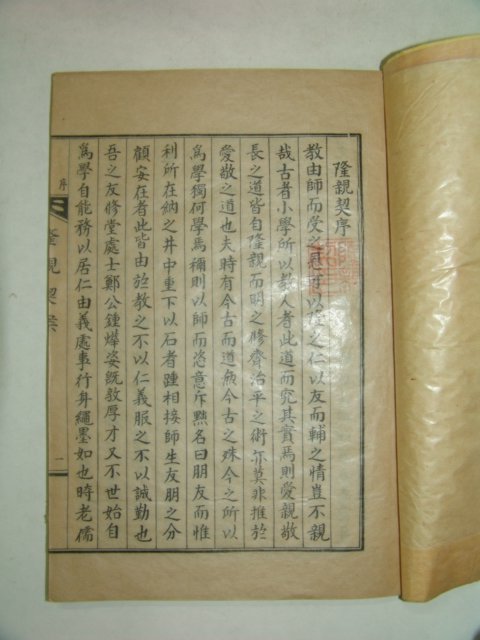 隆親契序
教由師而受之恩才以隆之仁以友而輔之情豈不親
哉古者小學所以敎人者此道而究其實焉則愛親敬
長之道皆自隆親而明之修齊治平之術亦莫非推於
愛敬之道也夫時有今古而道無今古之殊今之所以
爲學獨何學焉禰則以師而恣意斥黜名曰朋友而惟
利所在納之井中重下以石者踵相接師生友朋之分
顧安在者此皆由於教之不以仁義服之不以誠勤也
吾之友修堂處士鄭公鍾燁姿旣敦厚才又不世始自
爲學自能務以居仁由義處事行身繩墨如也時老儒
序
隆親契案
一